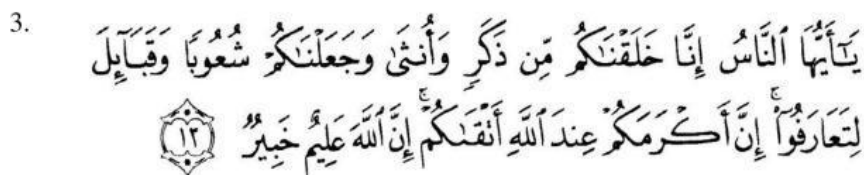 3.
يَـٰٓأَيُّهَا ٱلنَّاسُ إِنَّا خَلَقْنَـٰكُم مِّن ذَكَرٍ وَأُنثَىٰ وَجَعَلْنَـٰكُمْ شُعُوبًا وَقَبَآئِلَ
لِتَعَارَفُوٓا۟ ۚ إِنَّ أَكْرَمَكُمْ عِندَ ٱللَّهِ أَتْقَىٰكُمْ ۚ إِنَّ ٱللَّهَ عَلِيمٌ خَبِيرٌ ١٣